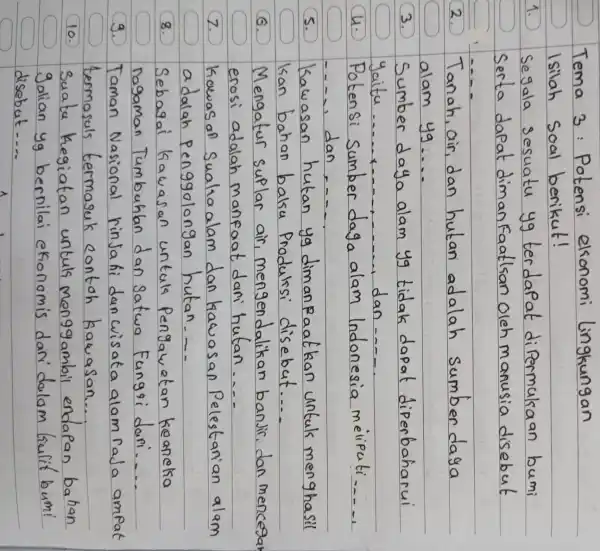 Tema 3 : Potensi ekonomi lingkungan
Isilah Soal berikut!
1. Segala sesuatu yg terdapat di Permukaan bumi
Serta dapat dimanfaatkan oleh manusia disebut
----
2. Tanah, air, dan hutan adalah sumber daya
alam yg....
3. Sumber daya alam yg tidak dapat diperbaharui
yaitu ----, ----, ----, dan ----
4. Potensi Sumber daya alam Indonesia meliputi ----,
----, dan ----
5. Kawasan hutan yg dimanfaatkan untuk menghasil
kan bahan baku Produksi disebut....
6. Mengatur suplai air, mengendalikan banjir, dan mencegah
erosi adalah manfaat dari hutan....
7. Kawasan Suaka alam dan kawasan Pelestarian alam
adalah Penggolongan hutan ---
8. Sebagai kawasan untuk Pengawetan keaneka
ragaman Tumbuhan dan satwa Fungsi dari ----
9. Taman Nasional rinjani dan wisata alam raja ampat
termasuk termasuk contoh kawasan...
10. Suatu kegiatan untuk menggambil endapan bahan
galian yg bernilai ekonomis dari dalam kulit bumi
disebut ---